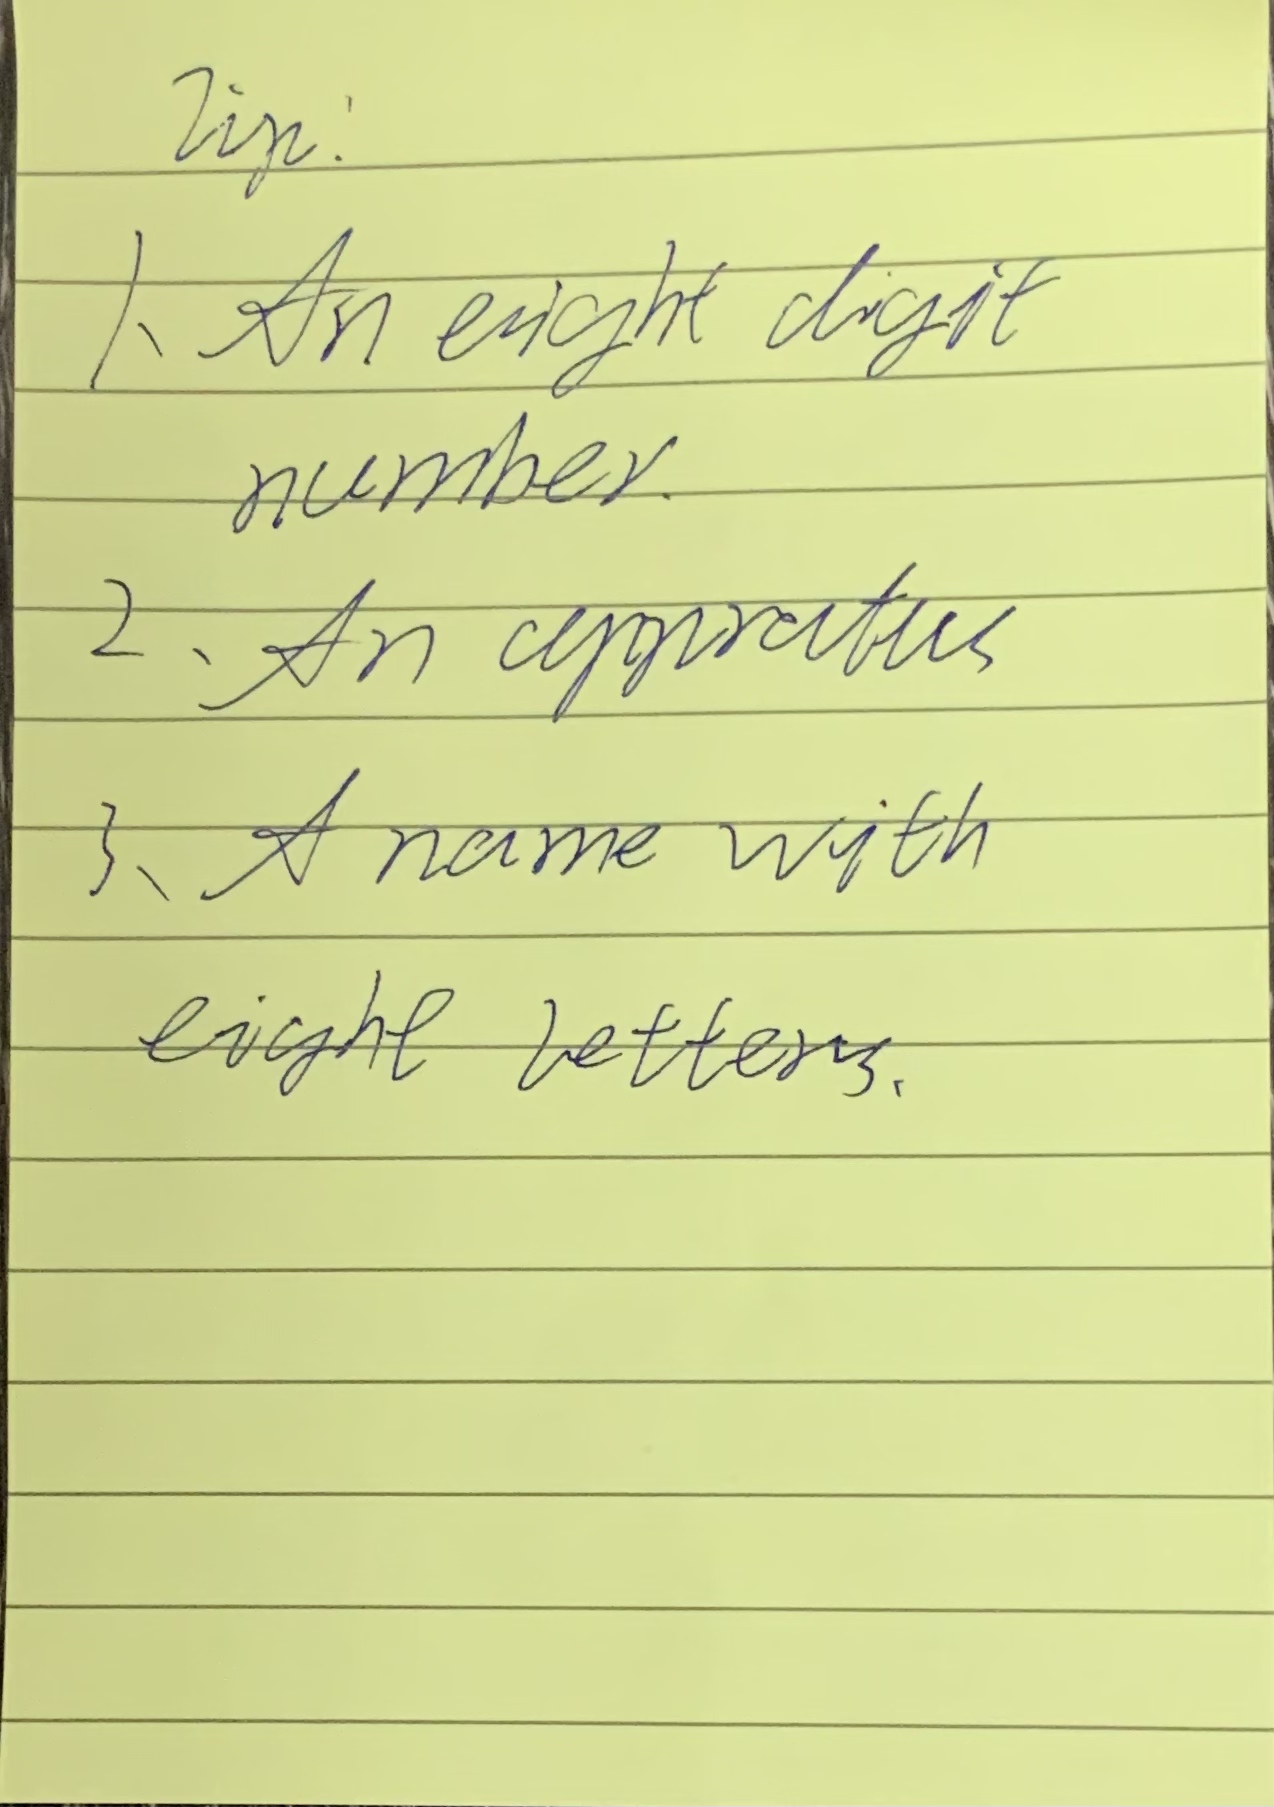 Zip:
1、An eight digit
number.
2、An appratus
3、A name with
eight letters.